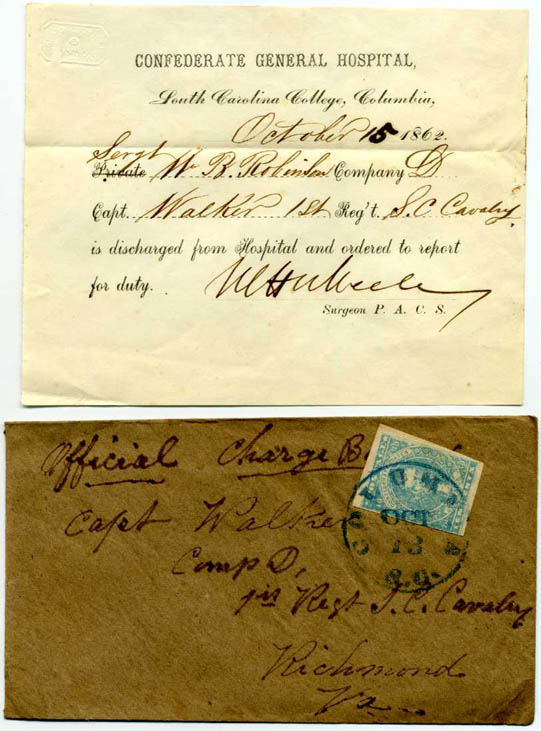 CONFEDERATE GENERAL HOSPITAL,
South Carolina College, Columbia,
October 15 1862.
Sergt
Private W B. Robinson Company D
Capt. Walker 1st Reg't. S. C Cavalry
is discharged from Hospital and ordered to report
for duty.
Surgeon P. A. C. S.
Official Charge B
Capt Walker
Comp D,
Regt S. C. Cavalry
Richmond
Va
OCT
13
S.C.